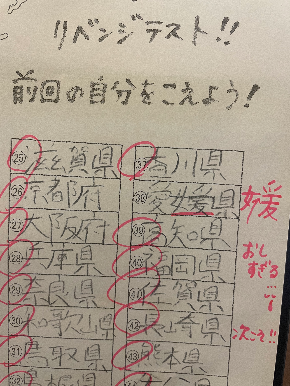 リベンジテスト!!
前回の自分をこえよう!
25 滋賀県
26 京都府
27 大阪府
28 兵庫県
29 奈良県
30 和歌山県
31 鳥取県
37 香川県
38 愛媛県
39 高知県
40 福岡県
41 佐賀県
42 長崎県
43 熊本県
媛
おし
すぎる
…!
次こそ!!